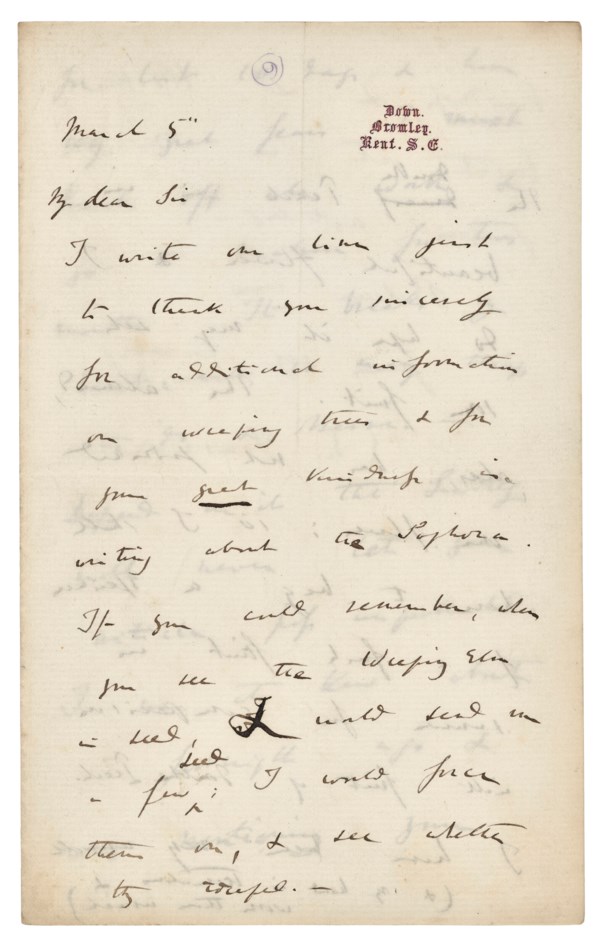 6
March 5th
Down.
Bromley.
Kent. S.E.
My dear Sir
I write one line just
to thank you sincerely
for additional information
on weeping trees & for
your great kindness in
writing about the Sophora.
If you could remember, when
you see the Weeping Elm
in seed, I would send me
seed
a few; I would force
them on, & see whether
they weeped. —